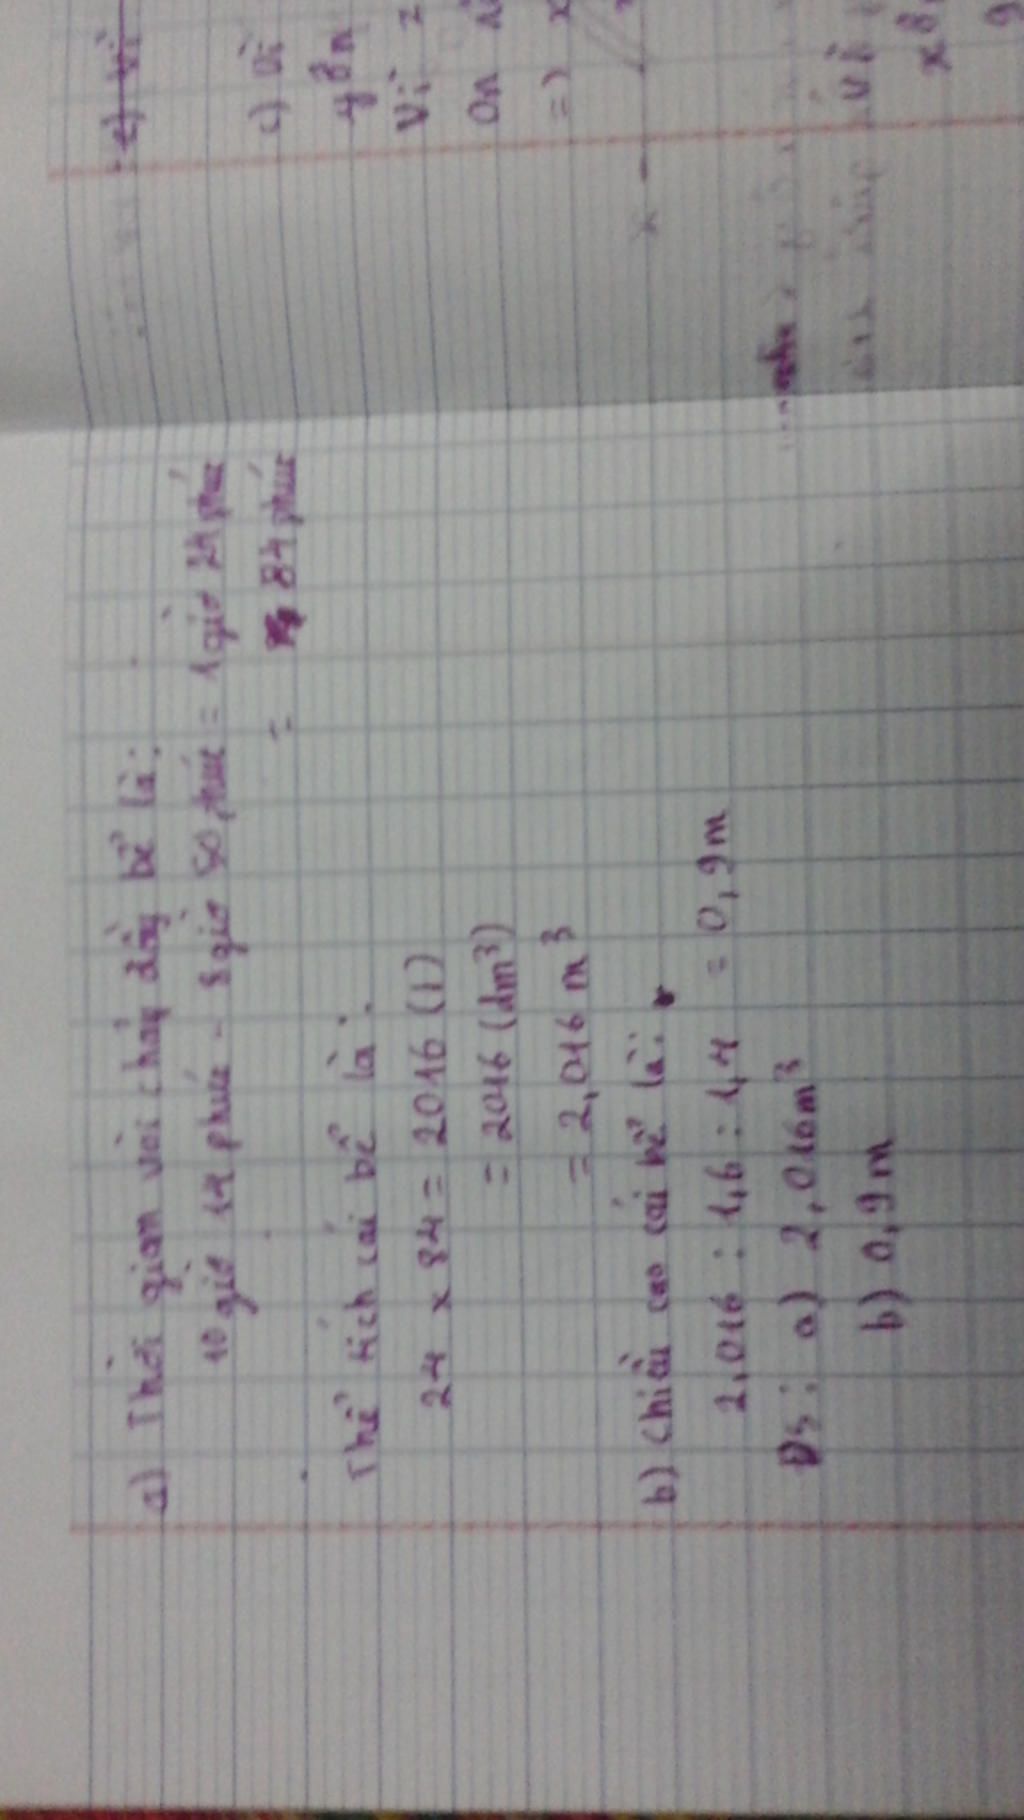 a) Thời gian vòi chảy đầy bể là:
10 giờ 14 phút - 8 giờ 50 phút = 1 giờ 24 phút
= 84 phút
Thể tích cái bể là:
24 x 84 = 2016 (l)
= 2016 (dm³)
= 2,016 m³
b) Chiều cao cái bể là:
2,016 : 1,6 : 1,4 = 0,9 m
Đs: a) 2,016 m³
b) 0,9 m
c) Vì
Vì
=) x